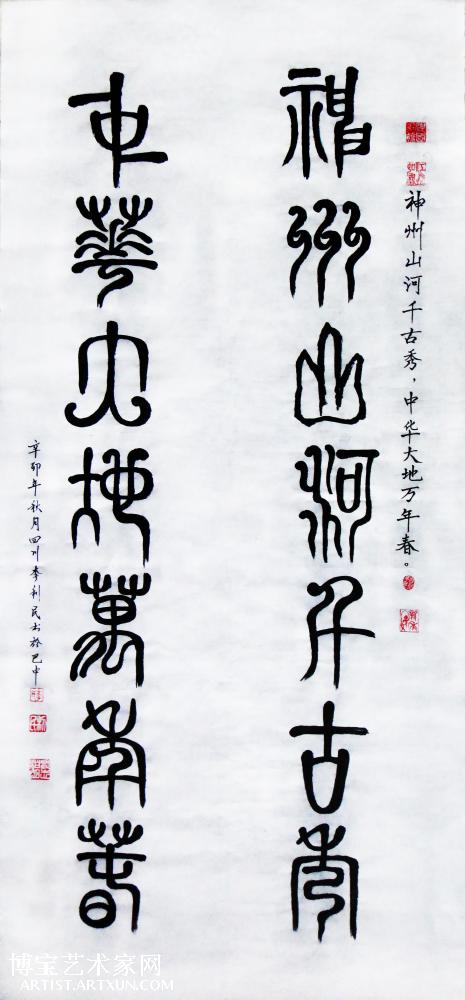 神州山河千古秀，中华大地万年春。
神州山河千古秀
中華大地萬年春
辛卯年秋月四川李利民书於巴中
博宝艺术家网
ARTIST.ARTXUN.COM